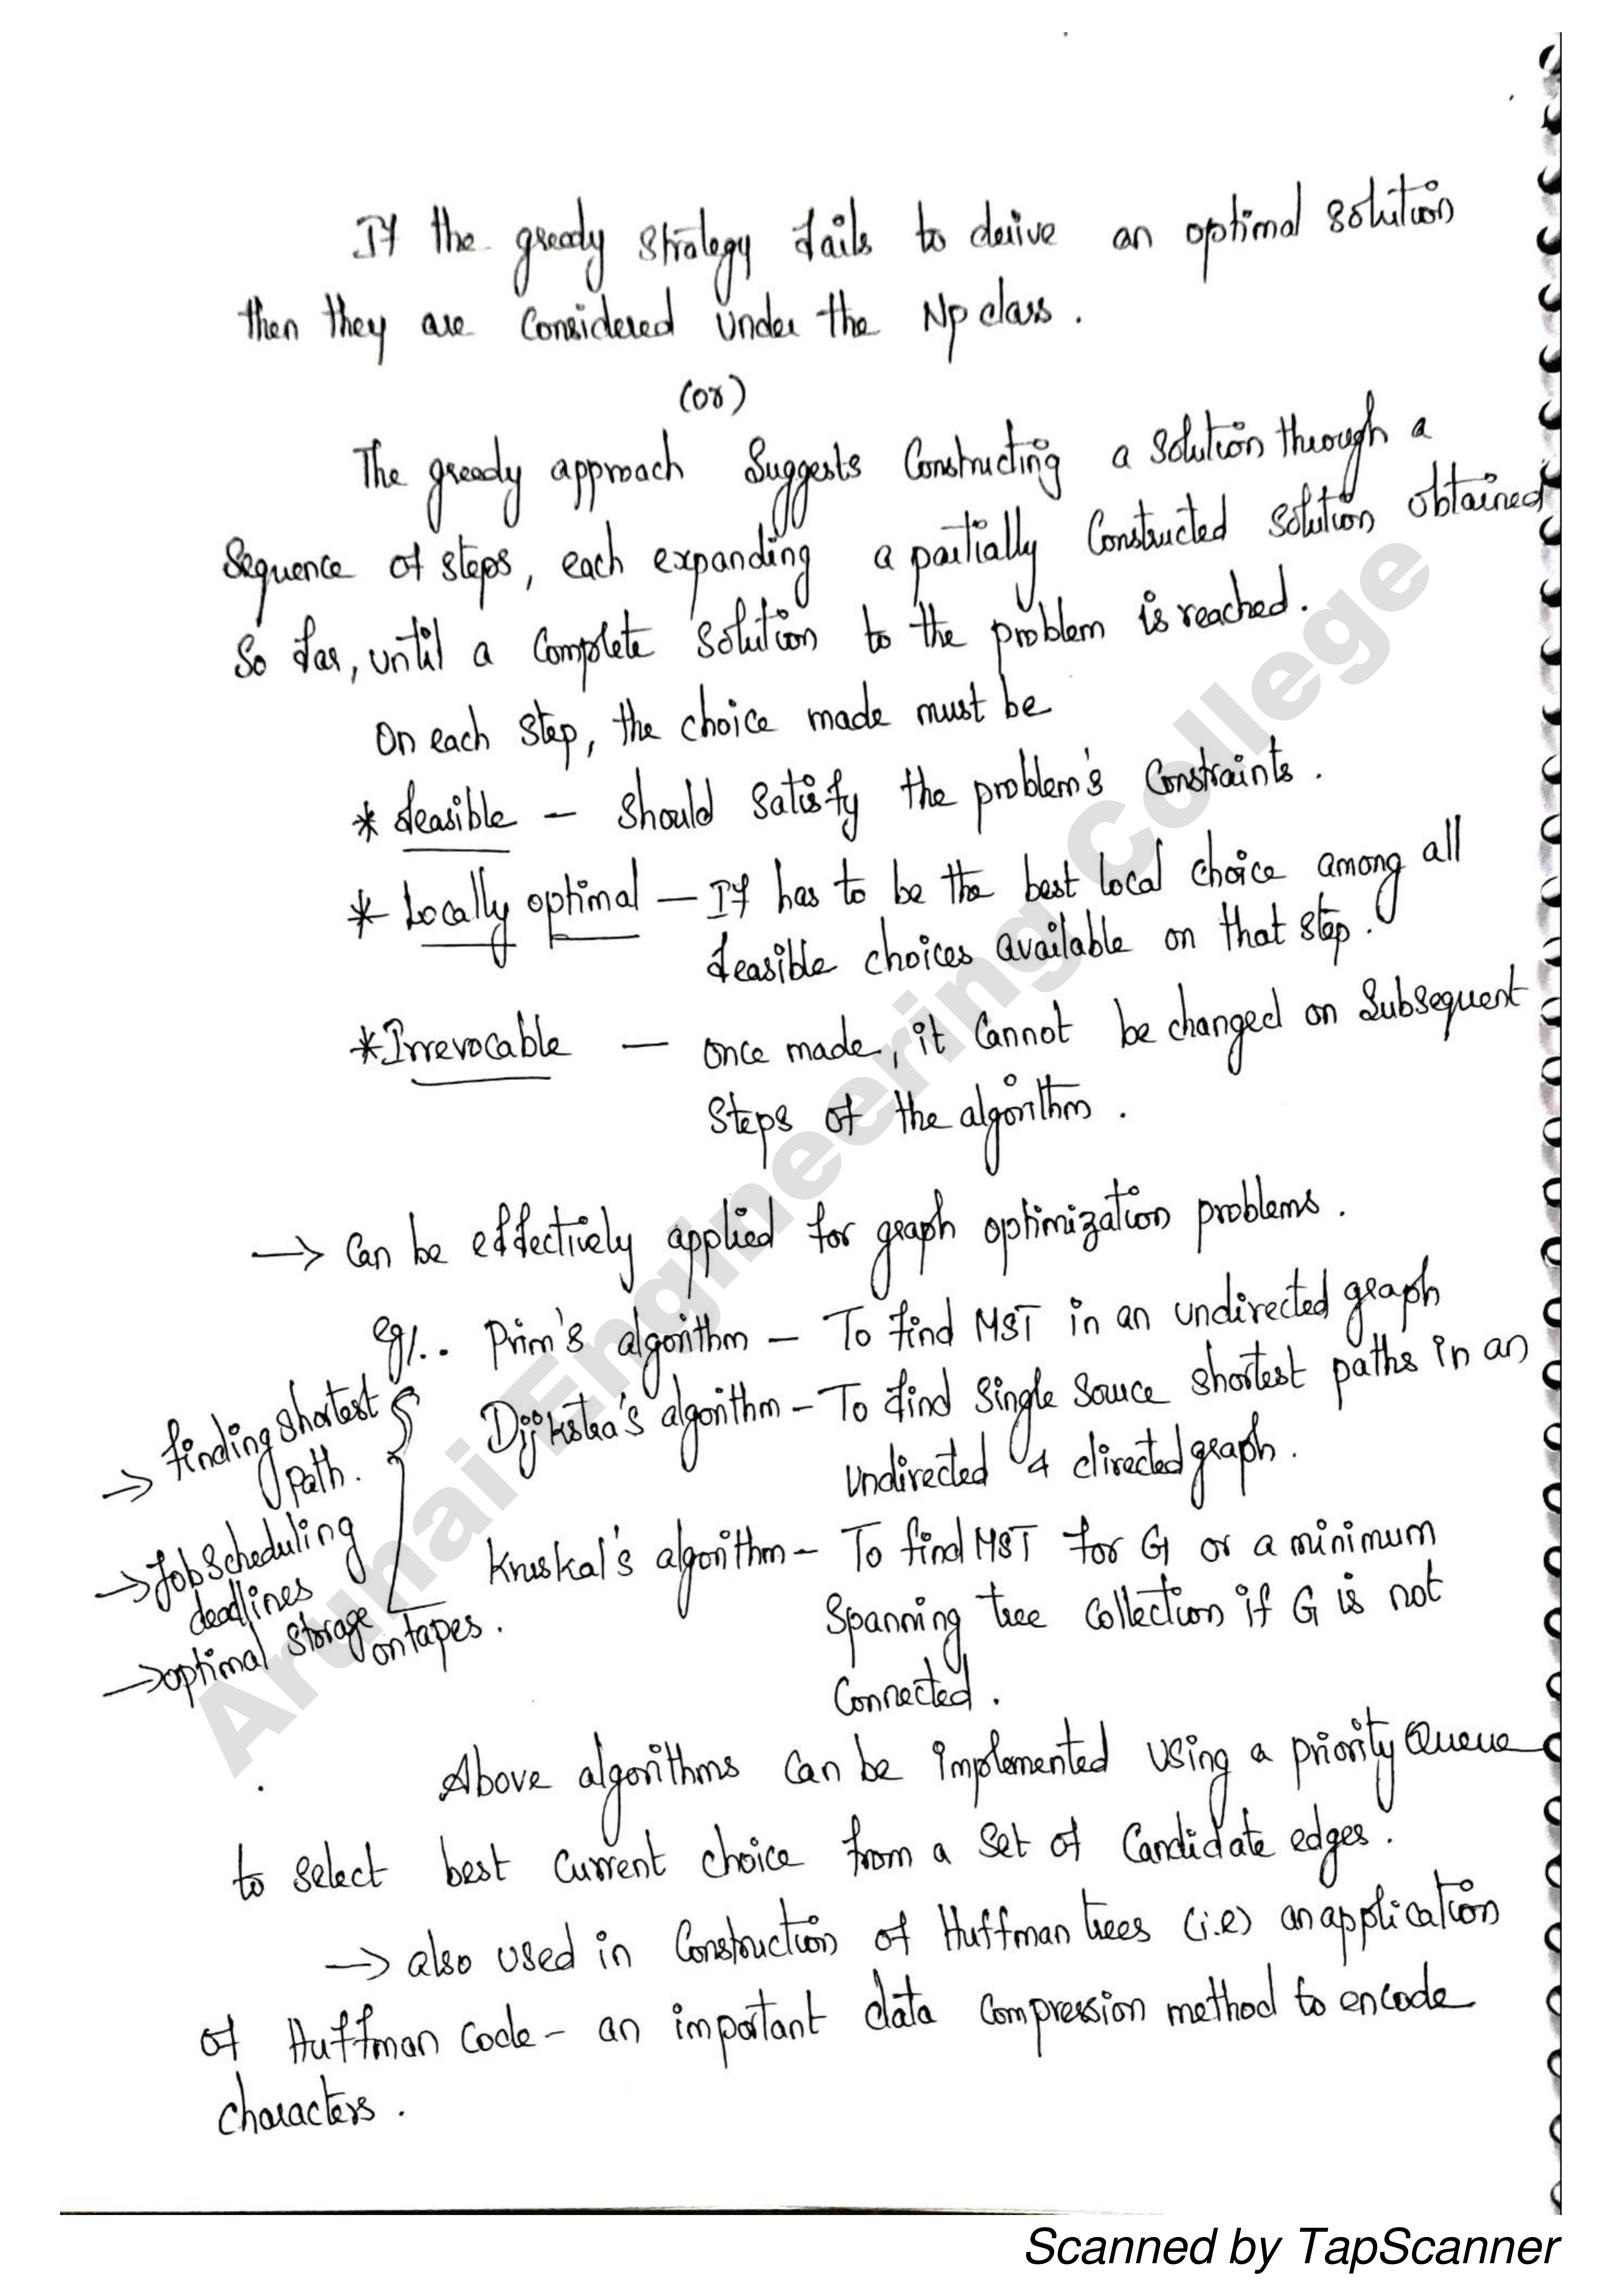 If the greedy strategy fails to derive an optimal solution
then they are considered under the Np class.
(or)
The greedy approach suggests constructing a solution through a
sequence of steps, each expanding a partially constructed solution obtained
so far, until a complete solution to the problem is reached.
On each step, the choice made must be
* feasible - should satisfy the problem's constraints.
* Locally optimal - If has to be the best local choice among all
feasible choices available on that step.
* Irrevocable - once made, it cannot be changed on subsequent
steps of the algorithm.
→ Can be effectively applied for graph optimization problems.
eg/.. Prim's algorithm - To find MST in an undirected graph
Dijkstra's algorithm - To find single source shortest paths in an
undirected & directed graph.
Kruskal's algorithm - To find MST for G or a minimum
spanning tree collection if G is not
connected.
→ finding shortest
path.
→ Job scheduling
deadlines
→ optimal storage
on tapes.
Above algorithms can be implemented using a priority Queue
to select best current choice from a set of candidate edges.
→ also used in construction of Huffman trees (i.e) an application
of Huffman code - an important data compression method to encode
characters.
Arunai Engineering College
Scanned by TapScanner